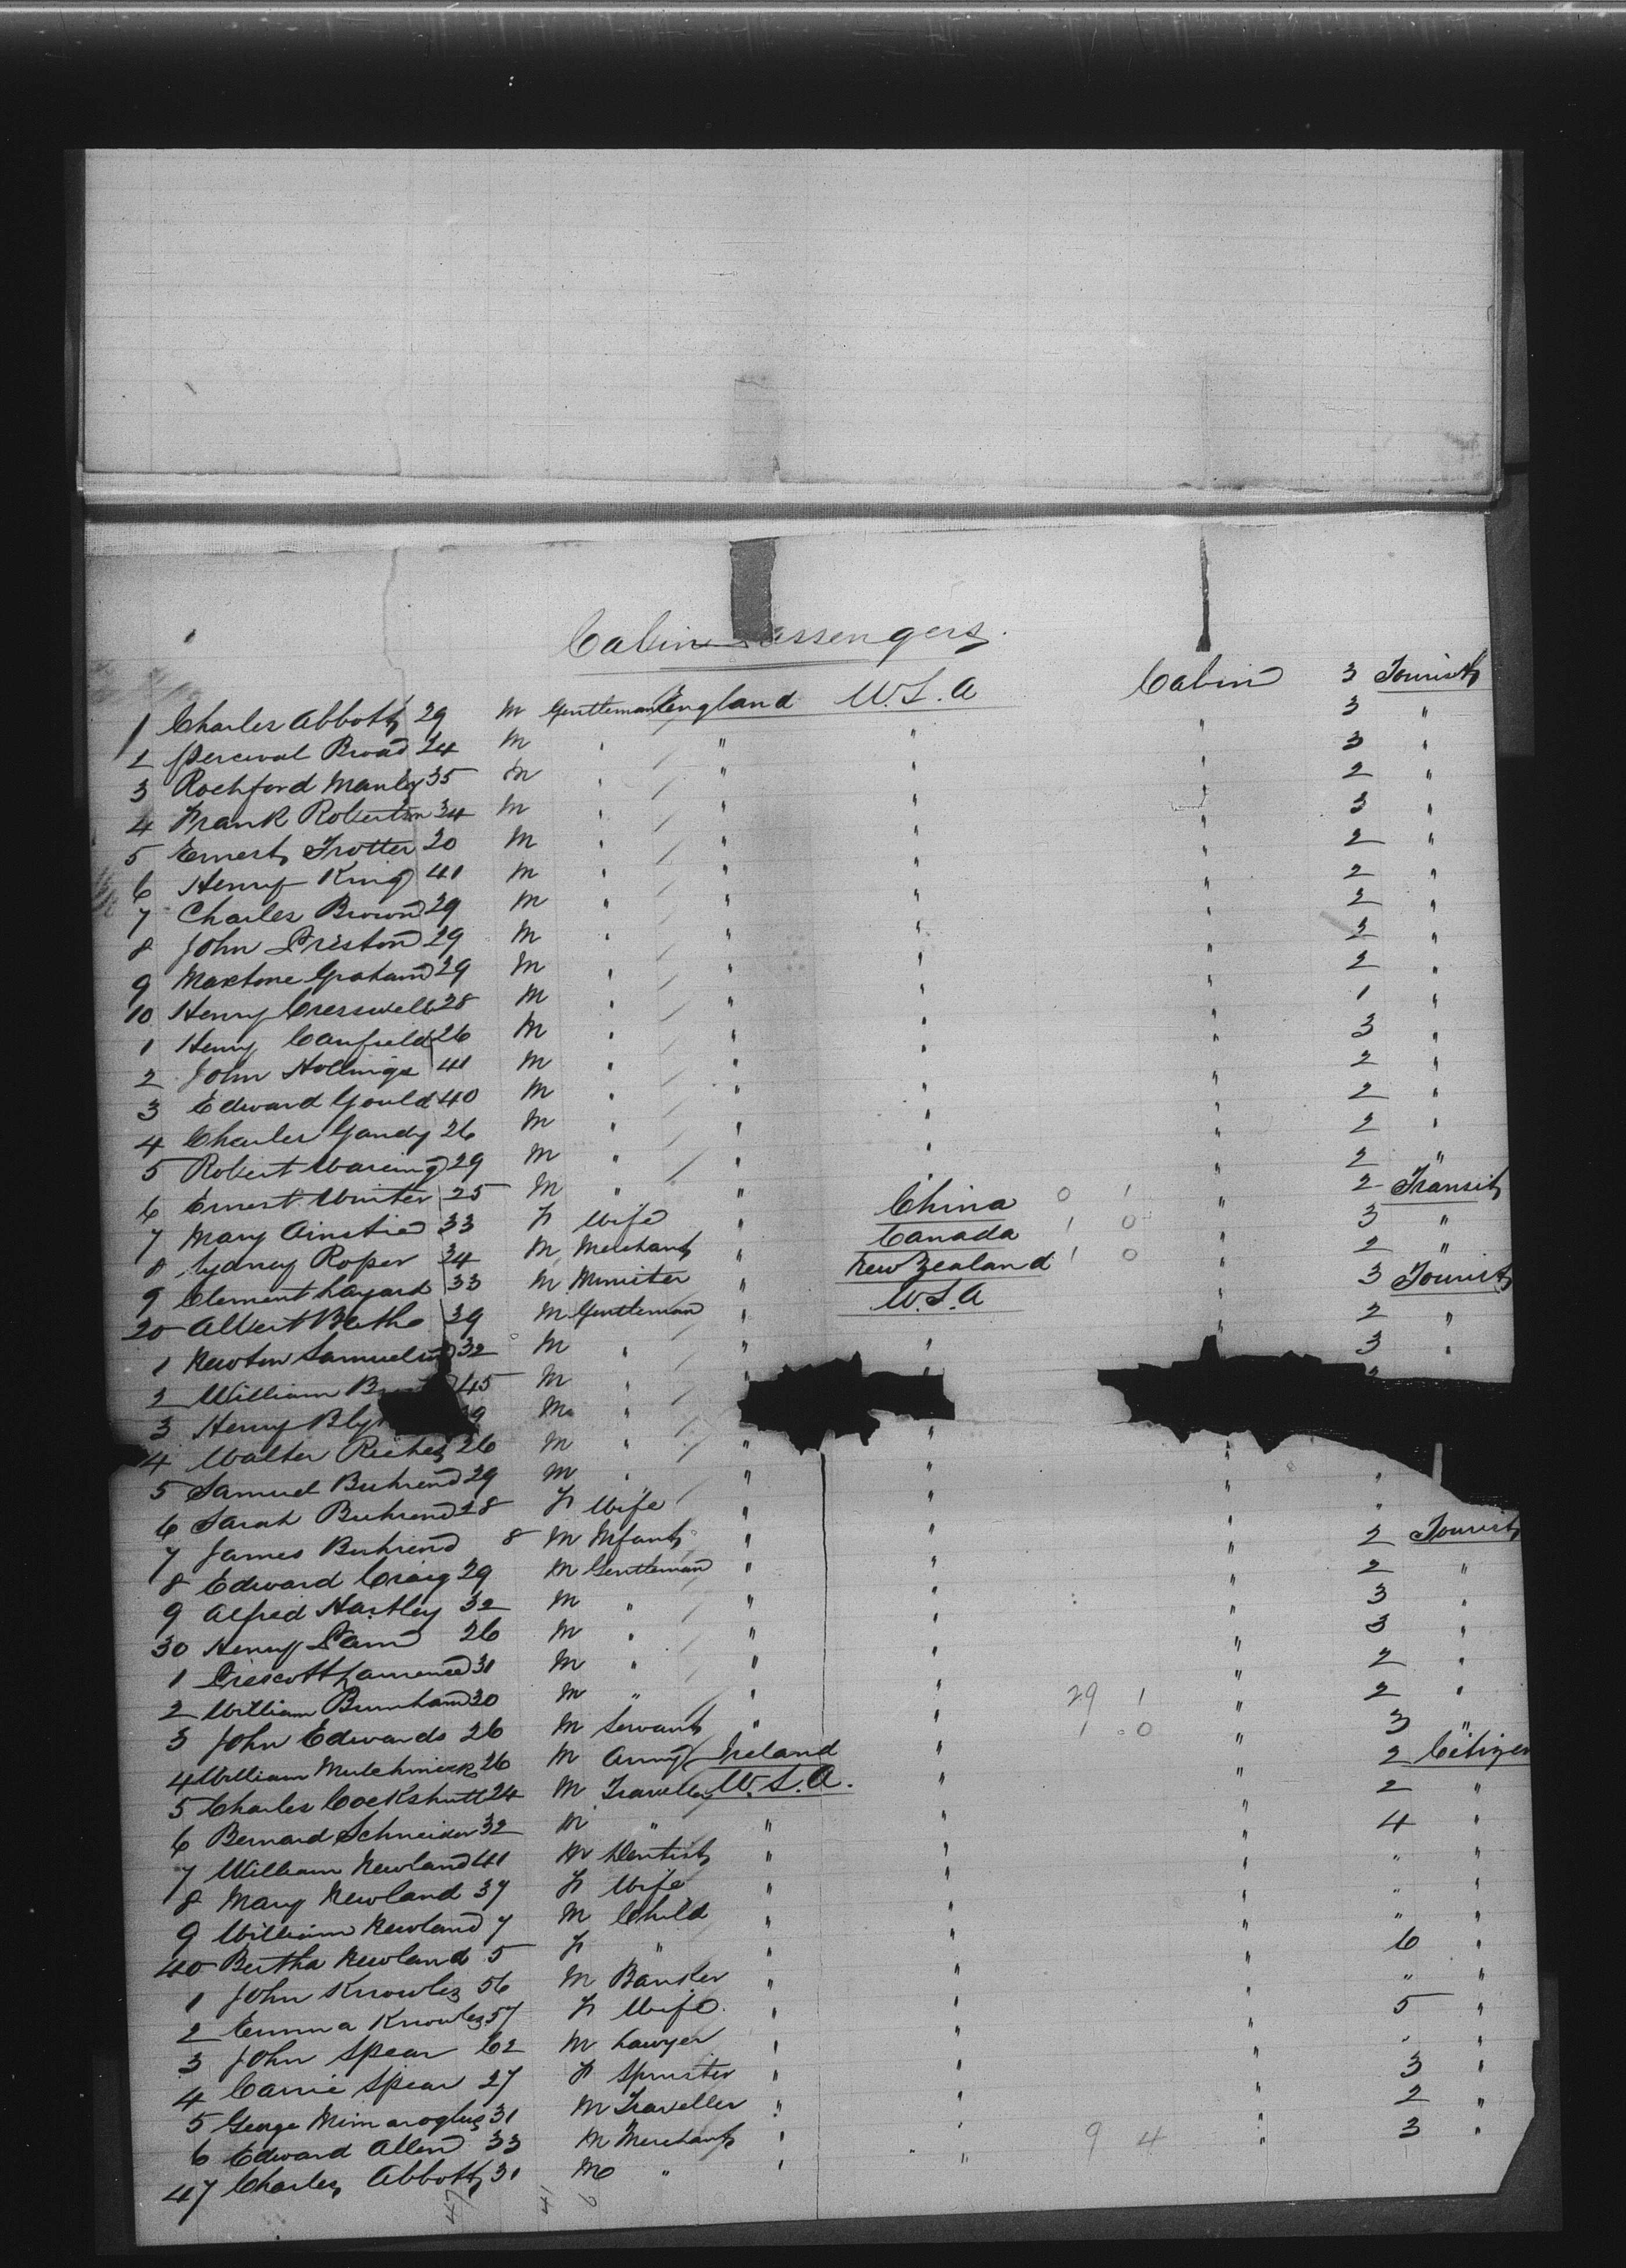 Cabin Passengers.
1 Charles Abbott 29 M Gentleman England U.S.A Cabin 3 Tourist
2 Percival Broad 24 M " " " " 3 "
3 Rochford Manley 35 M " " " " 3 "
4 Frank Robertson 34 M " " " " 2 "
5 Ernest Trotter 20 M " " " " 3 "
6 Henry King 41 M " " " " 2 "
7 Charles Brown 29 M " " " " 2 "
8 John Preston 29 M " " " " 2 "
9 Maxtone Graham 29 M " " " " 2 "
10 Henry Cresswell 28 M " " " " 2 "
1 Henry Canfield 26 M " " " " 1 "
2 John Hollings 41 M " " " " 3 "
3 Edward Gould 40 M " " " " 2 "
4 Charles Gandy 26 M " " " " 2 "
5 Robert Wareing 29 M " " " " 2 "
6 Ernest Winter 25 M " " " " 2 "
7 Mary Ainslie 33 F Wife " China 0 1 " 2 Transit
8 Sydney Roper 34 M Merchant " Canada 1 0 " 3 "
9 Clement Layard 33 M Minister " New Zealand 1 0 " 2 "
20 Albert 39 M Gentleman " U.S.A " 3 Tourist
1 Newton Samuelson 32 M " " " " 2 "
2 William 45 M " " 3 "
3 Henry 9 M "
4 Walter 26 M " " " "
5 Samuel Buhrend 29 M " " " " "
6 Sarah Buhrend 28 F Wife " " " "
7 James Buhrend 8 M Infant " " " 2 Tourist
8 Edward Craig 29 M Gentleman " " " 2 "
9 Alfred Hartley 32 M " " " " 3 "
30 Henry 26 M " " " " 3 "
1 Prescott Lawrence 31 M " " " " 2 "
2 William Burnham 30 M " " " 29 1 " 2 "
3 John Edwards 26 M Servant " " 1 0 " 3 "
4 William 26 M Army Ireland " " 2 Citizen
5 Charles Cockshutt 24 M Traveller U.S.A. " " 2 "
6 Bernard Schneider 32 M " " " " 4 "
7 William Newland 41 M Dentist " " " " "
8 Mary Newland 37 F Wife " " " " "
9 William Newland 7 M Child " " " " "
40 Bertha Newland 5 F " " " " 6 "
1 John Knowles 56 M Banker " " " " "
2 Emma Knowles 57 F Wife " " " 5 "
3 John Spear 62 M Lawyer " " " " "
4 Carrie Spear 27 F Spinster " " " 3 "
5 George Mimaroglus 31 M Traveller " " " 2 "
6 Edward Allen 33 M Merchant " " 9 4 " 3 "
47 Charles Abbott 31 M " " "
47 41 6